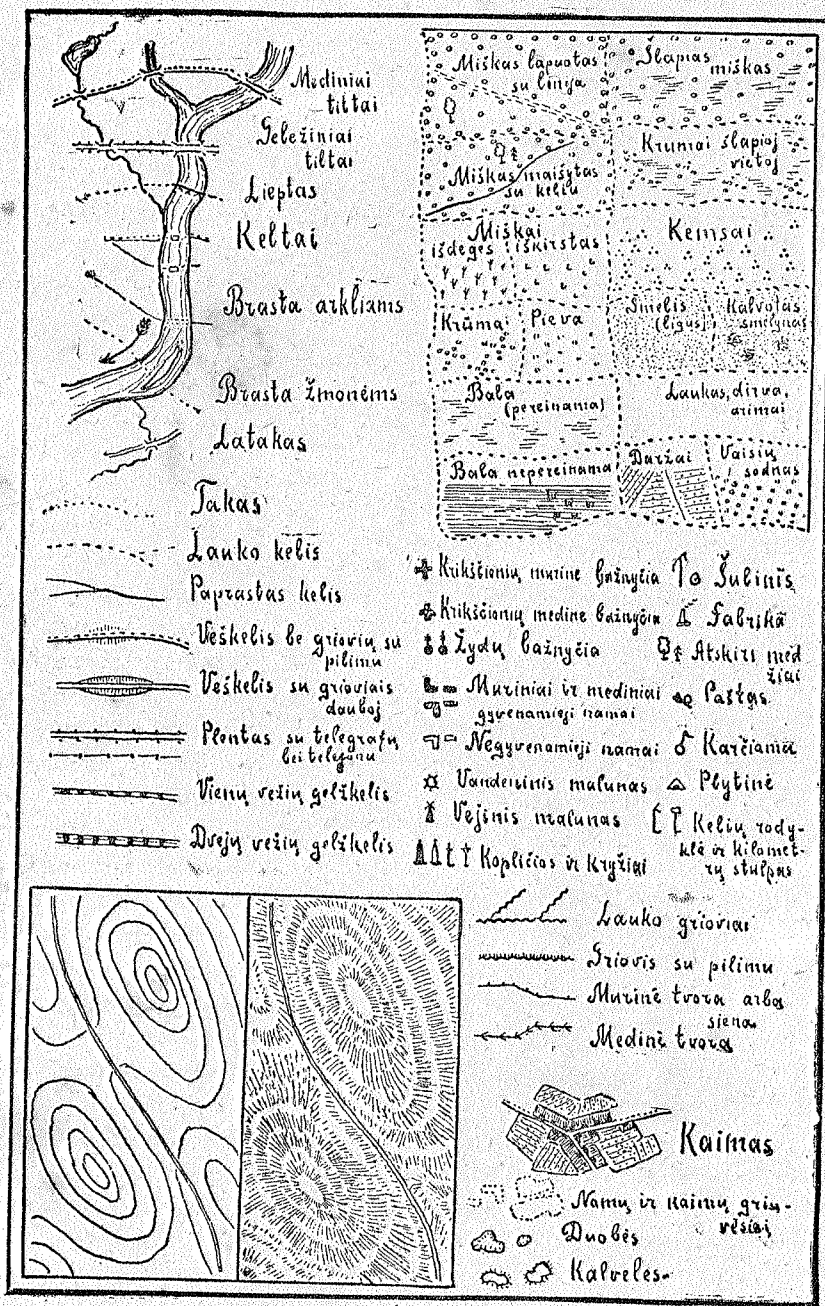 Mediniai
tiltai
Geležiniai
tiltai
Lieptas
Keltai
Brasta arkliams
Brasta žmonėms
Latakas
Takas
Lauko kelis
Paprastas kelis
Vėškelis be griovių su
pilimu
Vėškelis su grioviais
dauboj
Plentas su telegrafų
bei telefonu
Vienų vėžių gelžkelis
Dvejų vėžių gelžkelis
Miškas lapuotas
su linija
Šlapias
miškas
Miškas maišytas
su keliu
Krumai šlapioj
vietoj
Miškai
išdegęs iškirstas
Kemsai
Krūmai
Pieva
Smelis
(ligus)
Kalvotas
smelynas
Bala
(pereinama)
Laukas, dirva,
arimai
Bala nepereinama
Daržai
Vaisių
sodnas
Krikščionių murinė bažnyčia
Šulinis
Krikščionių medinė bažnyčia
Fabrika
Žydų bažnyčia
Atskiri med
žiai
Muriniai ir mediniai
gyvenamieji namai
Paštas
Negyvenamieji namai
Karčiama
Vandeninis malunas
Plytinė
Vejinis malunas
Kelių rody-
klė ir kilomet-
rų stulpas
Kopličios ir kryžiai
Lauko grioviai
Griovis su pilimu
Murinė tvora arba
siena
Medinė tvora
Kaimas
Namų ir kaimų griu-
vėsiai
Duobės
Kalvelės